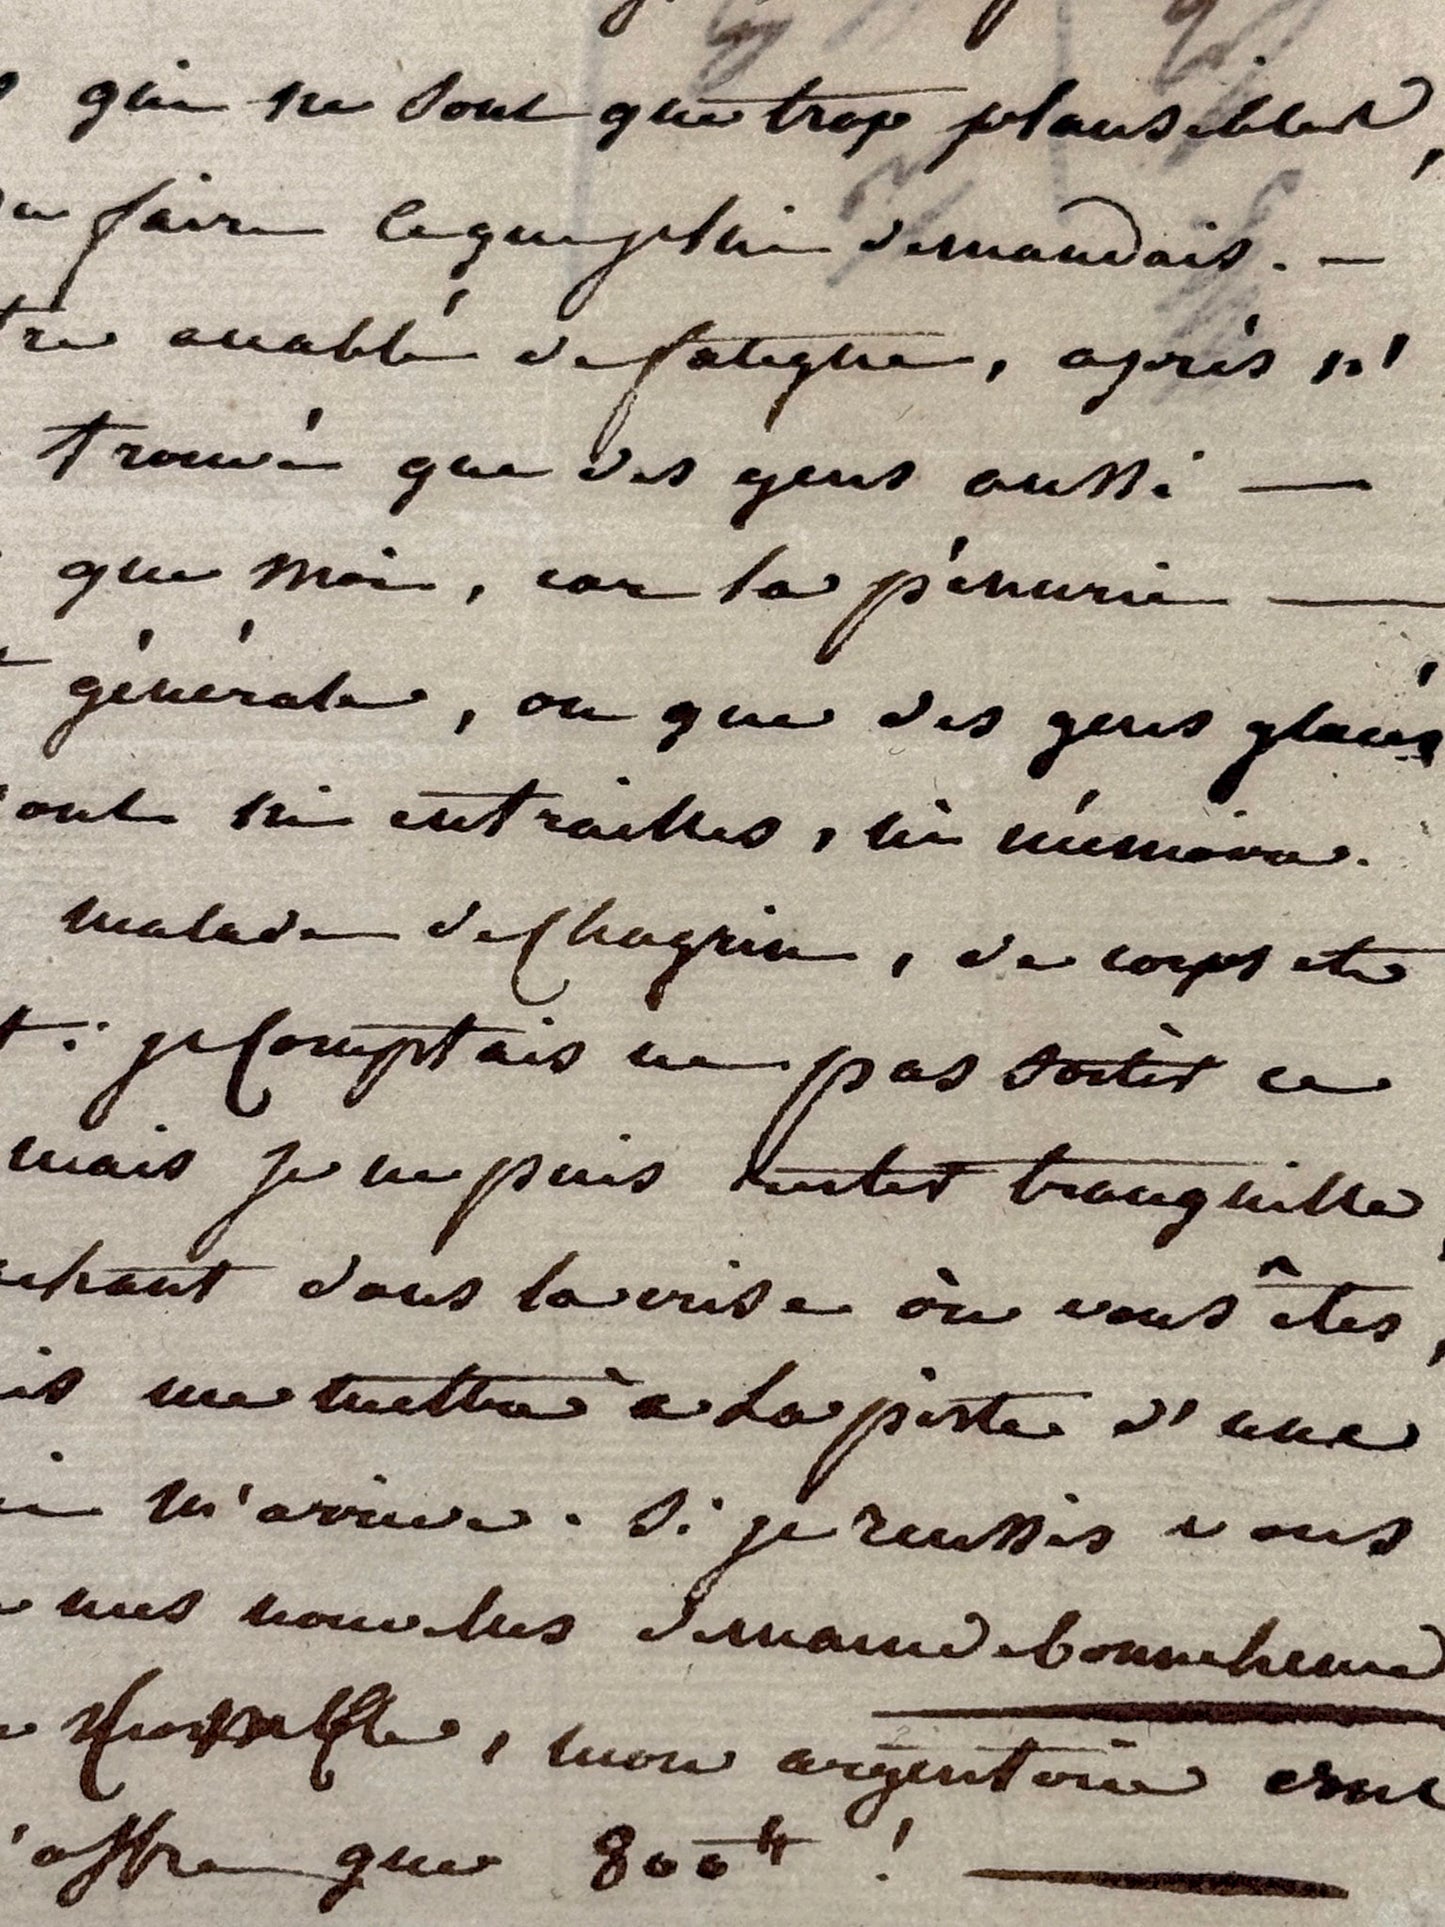 qui ne sont que trop plausibles,
faire ce que je lui demandais. —
accablé de fatigue, après n'
trouvé que des gens aussi —
que moi, car la pénurie —
générale, ou que des gens glacés
ont ni entrailles, ni mémoire.
malade de Chagrin, de corps et
: je Comptais ne pas sortir ce
mais je ne puis rester tranquille,
sachant dans la crise où vous êtes,
me mettre à la piste d'une
m'arrive. Si je reussis vous
mes nouvelles demain de bonne heure
, mon argenterie
offre que 800 ₶ ! —